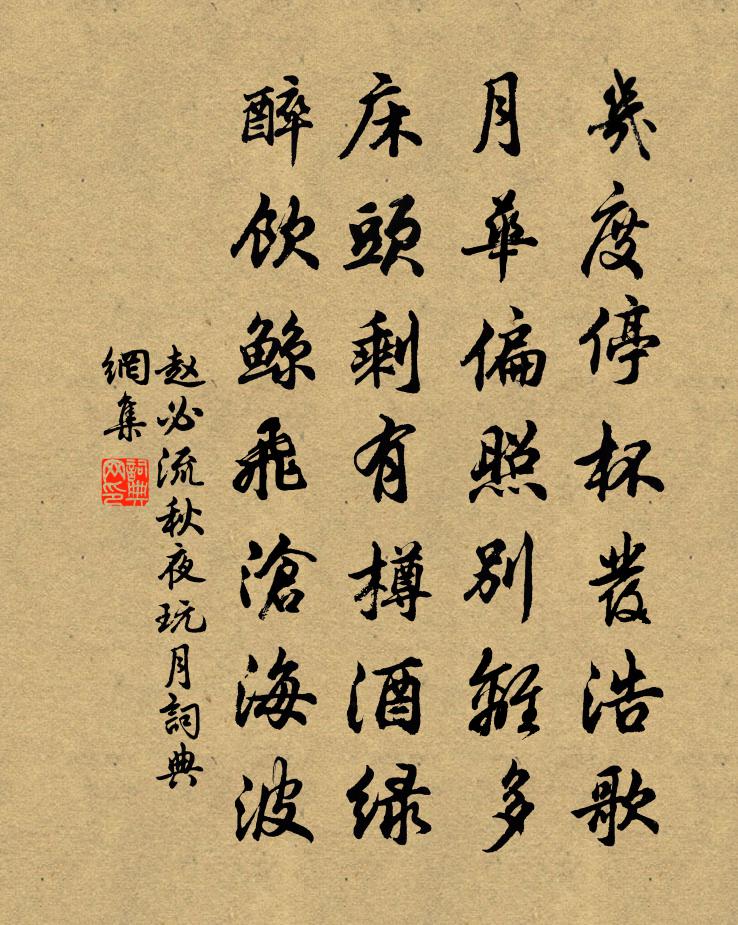 幾度停杯發浩歌
月華偏照別離多
床頭剩有樽酒綠
醉飲鯨飛滄海波
赵必流秋夜玩月詞典
網集
詞典
网印